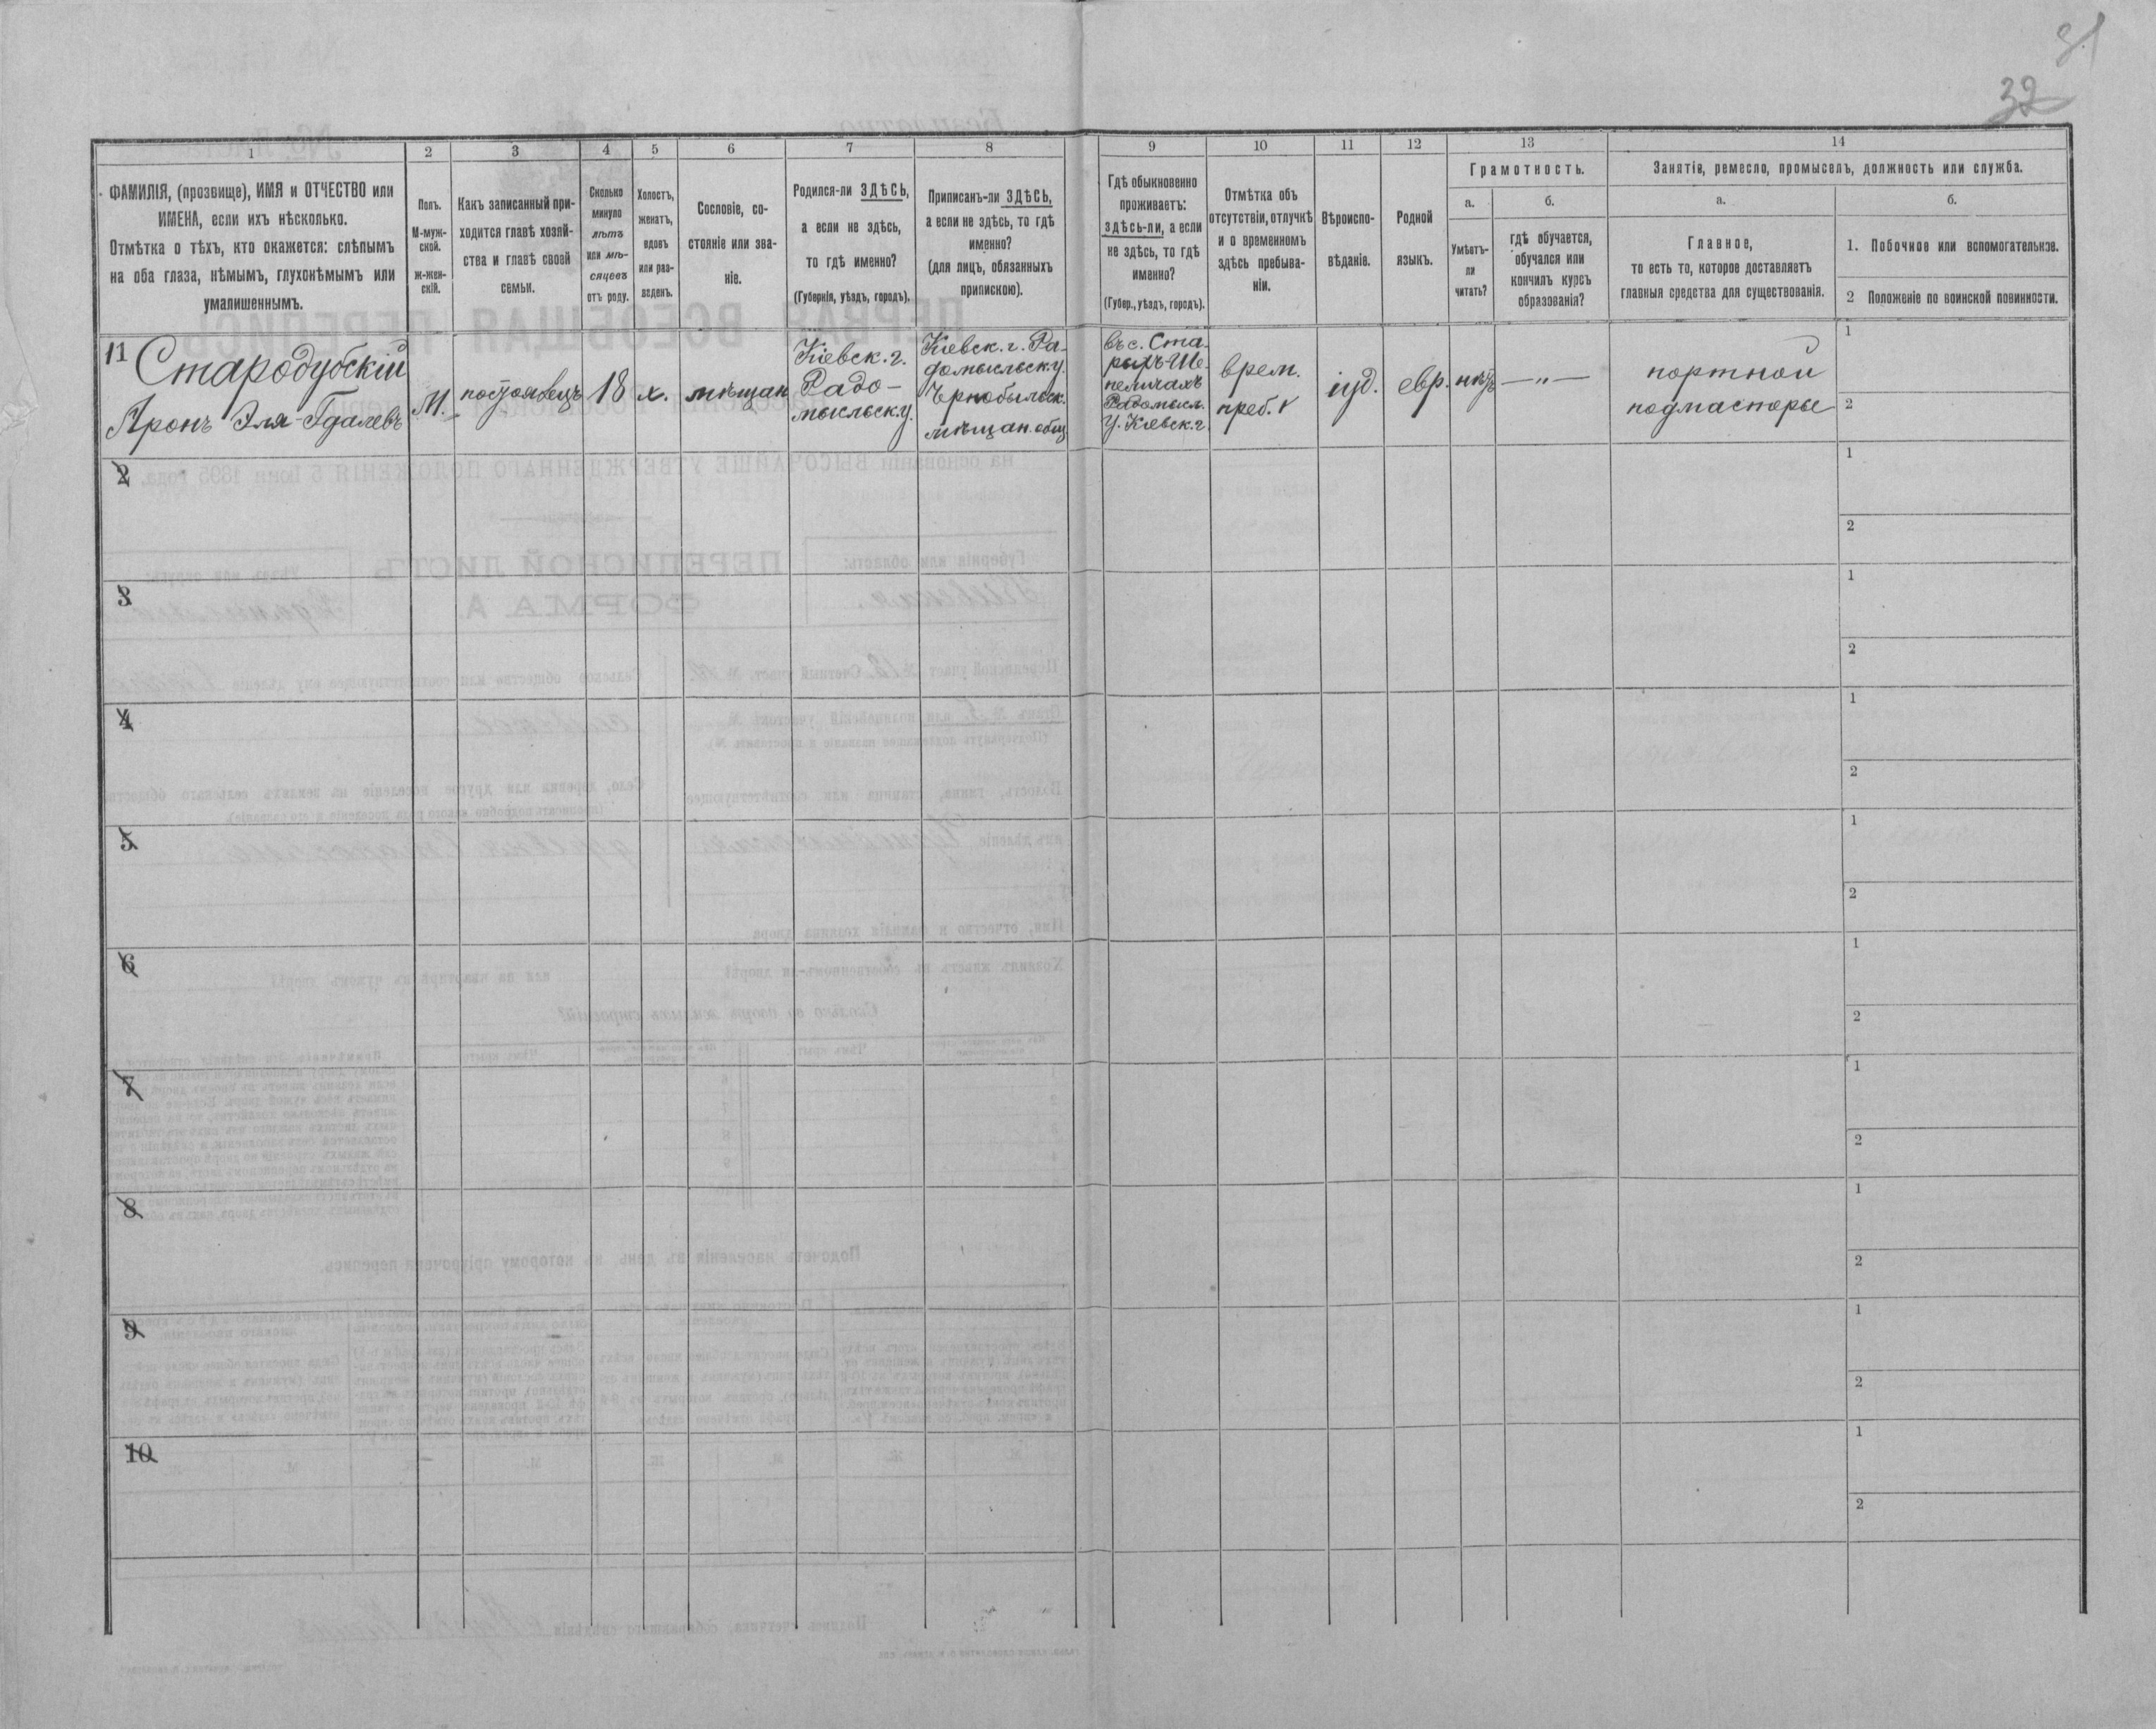 31
32
1
2
3
4
5
6
7
8
9
10
11
12
13
14
ФАМИЛІЯ, (прозвище), ИМЯ и ОТЧЕСТВО или
ИМЕНА, если ихъ нѣсколько.
Отмѣтка о тѣхъ, кто окажется: слѣпымъ
на оба глаза, нѣмымъ, глухонѣмымъ или
умалишеннымъ.
Полъ.
М-муж-
ской.
ж-жен-
скій.
Какъ записанный при-
ходится главѣ хозяй-
ства и главѣ своей
семьи.
Сколько
минуло
лѣтъ
или мѣ-
сяцевъ
отъ роду.
Холостъ,
женатъ,
вдовъ
или раз-
веденъ.
Сословіе, со-
стояніе или зва-
ніе.
Родился-ли ЗДѢСЬ,
а если не здѣсь,
то гдѣ именно?
(Губернія, уѣздъ, городъ).
Приписанъ-ли ЗДѢСЬ,
а если не здѣсь, то гдѣ
именно?
(для лицъ, обязанныхъ
припискою).
Гдѣ обыкновенно
проживаетъ:
здѣсь-ли, а если
не здѣсь, то гдѣ
именно?
(Губер., уѣздъ, городъ).
Отмѣтка объ
отсутствіи, отлучкѣ
и о временномъ
здѣсь пребыва-
ніи.
Вѣроиспо-
вѣданіе.
Родной
языкъ.
Грамотность.
а.
б.
Умѣетъ-
ли
читать?
гдѣ обучается,
обучался или
кончилъ курсъ
образованія?
Занятіе, ремесло, промыселъ, должность или служба.
а.
б.
Главное,
то есть то, которое доставляетъ
главныя средства для существованія.
1. Побочное или вспомогательное.
2 Положеніе по воинской повинности.
11 Стародубскій
Аронъ Эля-Гдалевъ
М.
постоялецъ
18
х.
мѣщан
Кіевск. г.
Радо-
мысльск. у.
Кіевск. г. Ра-
домысльск. у.
Чернобыльск.
мѣщан. общ
въ с. Ста-
рыхъ-Ше-
пеличахъ
Радомысл.
у. Кіевск. г.
врем.
преб. V
іуд.
евр.
нѣтъ
—"—
портной
подмастерье
1
2
2
1
2
3
1
2
4
1
2
5
1
2
6
1
2
7
1
2
8
1
2
9
1
2
10
1
2